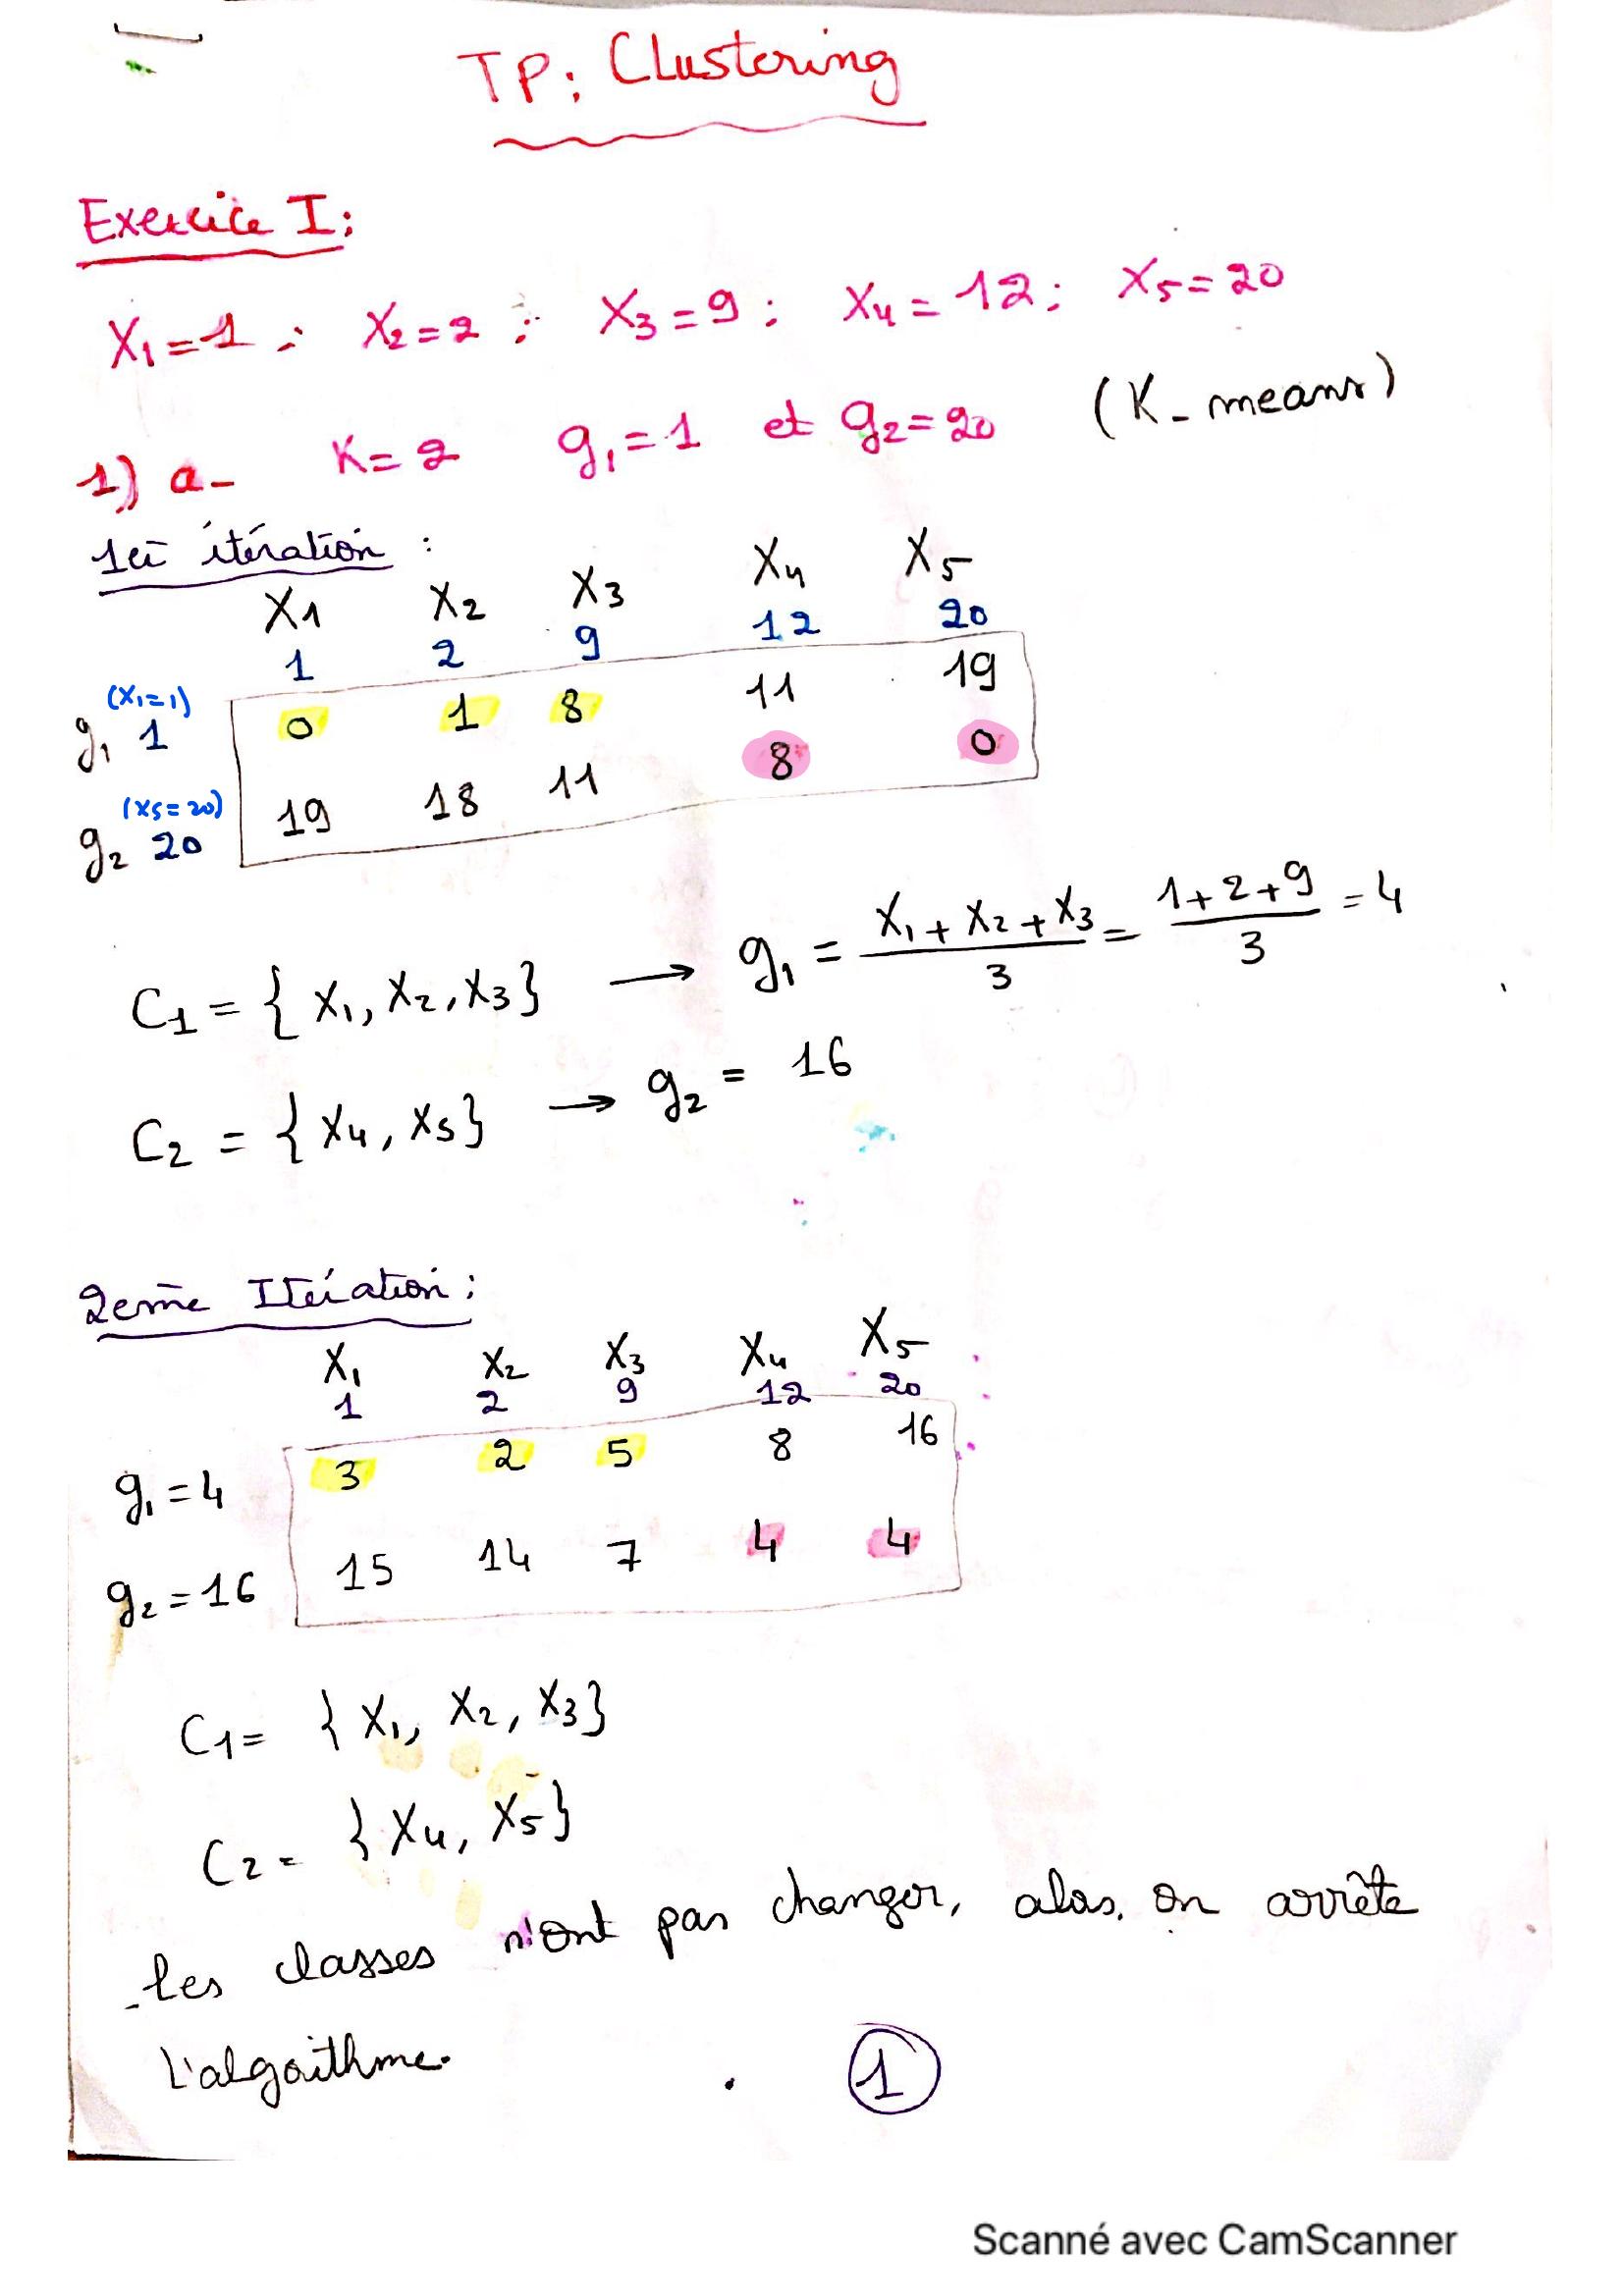 TP: Clustering
Exercice I:
X1=1 ; X2=2 ; X3=9 ; X4=12 ; X5=20
1) a- K=2 g1=1 et g2=20 (K-means)
1er itération :
X1 X2 X3 X4 X5
1 2 9 12 20
(X1=1)
g1 1 0 1 8 11 19
(X5=20)
g2 20 19 18 11 8 0
C1 = { X1, X2, X3} → g1 = (X1 + X2 + X3)/3 = (1+2+9)/3 = 4
C2 = { X4, X5} → g2 = 16
2eme Itération :
X1 X2 X3 X4 X5
1 2 9 12 20
g1=4 3 2 5 8 16
g2=16 15 14 7 4 4
C1= { X1, X2, X3}
C2= { X4, X5}
-les classes n'ont pas changer, alors, on arrête
l'algorithme.
1
Scanné avec CamScanner